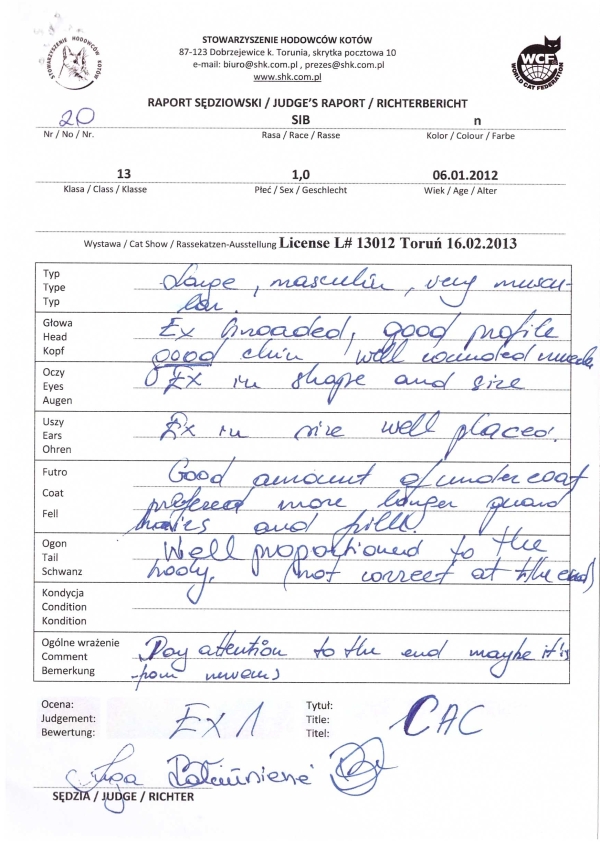 STOWARZYSZENIE HODOWCÓW KOTÓW
STOWARZYSZENIE HODOWCÓW KOTÓW
87-123 Dobrzejewice k. Torunia, skrytka pocztowa 10
e-mail: biuro@shk.com.pl , prezes@shk.com.pl
www.shk.com.pl
WCF
WORLD CAT FEDERATION
RAPORT SĘDZIOWSKI / JUDGE'S RAPORT / RICHTERBERICHT
20 SIB n
Nr / No / Nr. Rasa / Race / Rasse Kolor / Colour / Farbe
13 1,0 06.01.2012
Klasa / Class / Klasse Płeć / Sex / Geschlecht Wiek / Age / Alter
Wystawa / Cat Show / Rassekatzen-Ausstellung License L# 13012 Toruń 16.02.2013
Typ
Type
Typ
Large, masculin, very muscu-
lar.
Głowa
Head
Kopf
Ex broaded, good profile
good chin well rounded muzzle
Oczy
Eyes
Augen
Ex in shape and size
Uszy
Ears
Ohren
Ex in size well placed.
Futro
Coat
Fell
Good amount of undercoat
prefered more longer guard
haires and frill.
Ogon
Tail
Schwanz
Well proportioned to the
body, (not correct at the end)
Kondycja
Condition
Kondition
Ogólne wrażenie
Comment
Bemerkung
Pay attention to the end maybe it's
from
Ocena:
Judgement:
Bewertung:
Ex 1
Tytuł:
Title:
Titel:
CAC
SĘDZIA / JUDGE / RICHTER